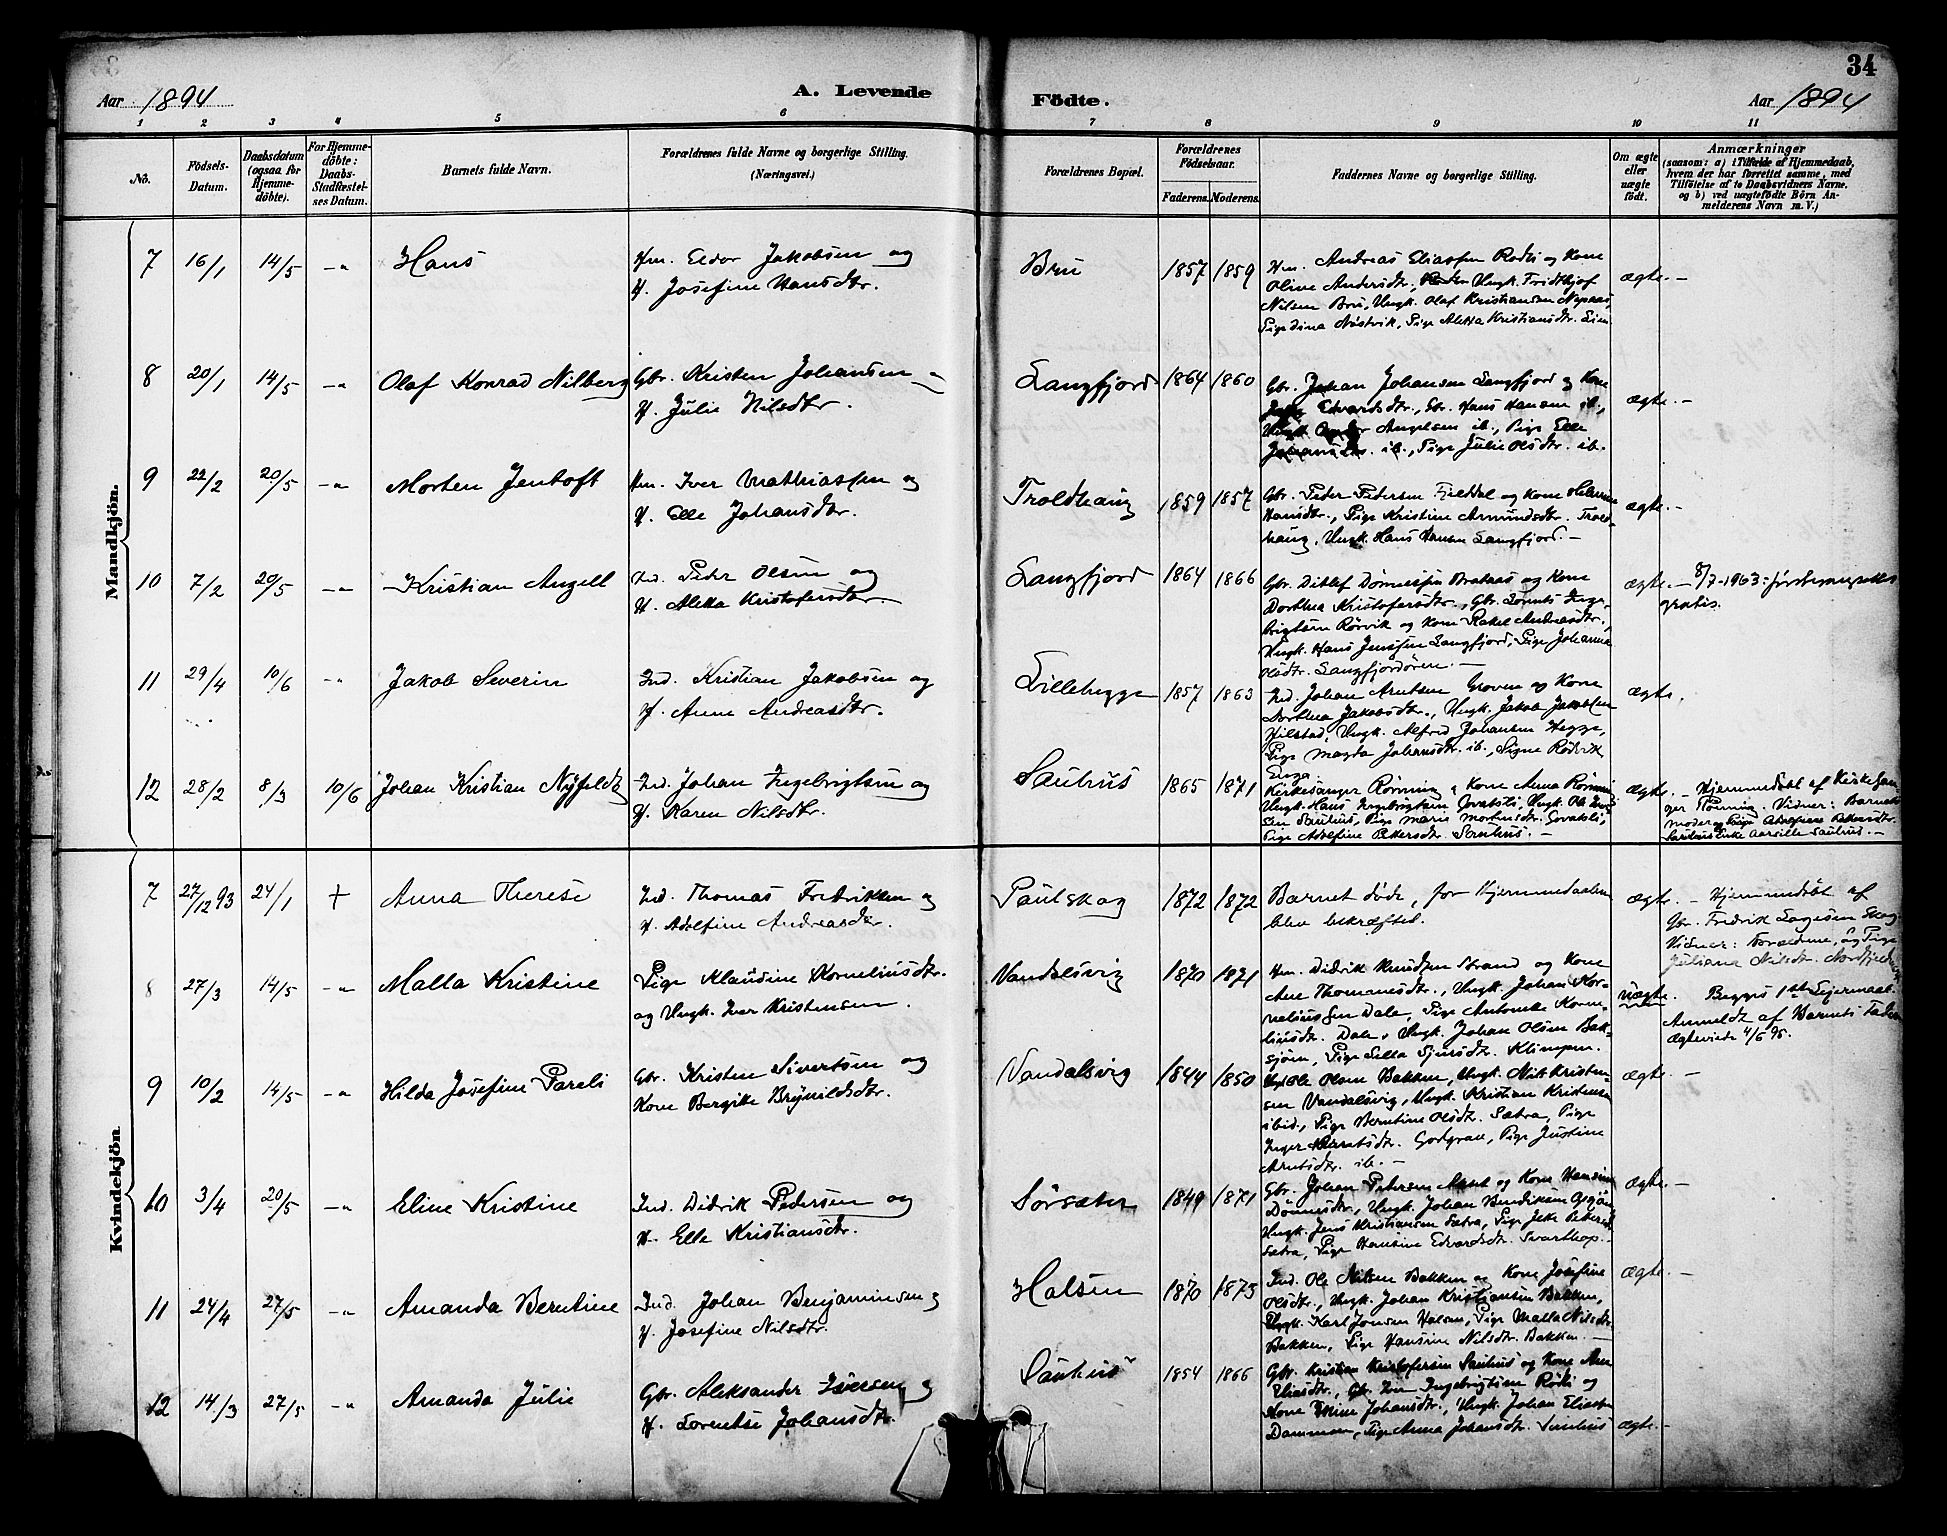 34
Aar 1894 A. Levende Födte. Aar 1894
1 2 3 4 5 6 7 8 9 10 11
No.
Födsels-
Datum.
Daabsdatum
(ogsaa for
Hjemme-
döbte).
For Hjemme-
döbte:
Daabs-
Stadfæstel-
ses Datum.
Barnets fulde Navn.
Forældrenes fulde Navne og borgerlige Stilling.
(Næringsvei.)
Forældrenes Bopæl.
Forældrenes
Födselsaar.
Faderens. Moderens.
Faddernes Navne og borgerlige Stilling.
Om ægte
eller
uægte
født.
Anmærkninger
(saasom: a) i Tilfælde af Hjemmedaab,
hvem der har forrettet samme, med
Tilföielse af to Daabsvidners Navne.
og b) ved uægtefödte Börn An-
melderens Navn m. V.)
Mandkjön.
7 16/1 14/5 -"- Hans
Hm. Eedor Jakobsen og
H. Josefine Hansdtr.
Bru 1857 1859
Hm. Andreas Eliassen Rødli og Kone
Olive Andersdtr., Ungk. Fridthjof
Nilsen Bru, Ungk. Olaf Kristiansen
Pige Dina Nøstvik, Pige Aletta Kristiansdtr.
ægte. -
8 20/1 14/5 -"- Olaf Konrad Nilberg
Gbr. Kristen Johansen og
H. Julie Nilsdtr.
Langfjord 1864 1860
Gbr. Johan Johansen Langfjord og Kone
Edvardsdtr., Gbr. Hans Hansen ib.,
Ungk. Angelsen ib., Pige Elle
Johansdtr. ib., Pige Julie Olsdtr. ib.
ægte. -
9 22/2 20/5 -"- Morten Jentoft
Hm. Iver Mathiassen og
H. Elle Johansdtr.
Troldhaug 1859 1857
Gbr. Peder Pedersen Fjelddal og Kone
Hansdtr., Pige Kristine Amundsdtr. Trold-
haug, Ungk. Hans Hansen Langfjord. -
ægte. -
10 7/2 20/5 -"- Kristian Angell
Ind. Peder Olsen og
H. Aletta Kristofersdtr.
Langfjord 1864 1866
Gbr. Ditlef Dønnesen og Kone
Dorthea Kristofersdtr., Gbr. Lorents Inge-
brigtsen Rørvik og Kone Rakel Andreasdtr.,
Ungk. Hans Jenssen Langfjord, Pige Johanna
Olsdtr. Langfjordøren. -
ægte. - 8/7-1963:
gratis.
11 29/4 10/6 -"- Jakob Severin
Ind. Kristian Jakobsen og
H. Anne Andreasdtr.
Lillehegge 1857 1863
Ind. Johan Arntsen Groven og Kone
Dorthea Jakobsdtr., Ungk. Jakob Jakobsen
Hilstad, Ungk. Alfred Johansen Hegge,
Pige Magda Johansdtr. ib., Signe Rødvik
ægte.
12 28/2 8/3 10/6 Johan Kristian Nyfeldt
Ind. Johan Ingebrigtsen og
H. Karen Nilsdtr.
Sauhus 1865 1871
Kirkesanger Rønning, Kone Anna Rønning
Ungk. Hans Ingebrigtsen Govatsli, Ungk. Ole
sen Sauhus, Pige Marie Mortensdtr. Govatsli,
Pige Adolfine Petersdtr. Sauhus. -
ægte. - Hjemmedøbt af Kirkesan-
ger Rønning. Vidner: Barnets
moder og Pige Adolfine Petersdtr.
Kvindekjön
7 27/12 93 24/1 + Anna Therese
Ind. Thomas Fredriksen og
H. Adolfine Andreasdtr.
Paulskag 1872 1872
Barnet døde, før Hjemmedaaben
blev bekræftet.
ægte. - Hjemmedøbt af
Gbr. Fredrik
Vidner: Forældrene, og Pige
Juliana Nilsdtr.
8 27/3 14/5 -"- Malla Kristine
Pige Klaudine Korneliusdtr.
og Ungk. Iver Kristensen.
Vandalsvig 1870 1871
Hm. Didrik Knudtzen Strand og Kone
Ane Thomasdtr., Ungk. Johan Kor-
neliussen Dale, Pige Antonette Korne-
liusdtr. Dale, Ungk. Johan Olsen Bak-
sjøen, Pige Sella Sjursdtr. Klimpen.
uægte. Begges 1ste Leiermaal.
Anmeldt af Barnets Fader.
Ægteviede 4/6 95.
9 10/2 14/5 -"- Hilda Josefine Pareli
Gbr. Kristen Sivertsen og
Kone Bergitte Brynildsdtr.
Vandalsvig 1844 1850
Ole Olsen Bakken, Ungk. Nils Kristen-
sen Vandalsvig, Ungk. Kristian Kristensen
ibid., Pige Berntine Olsdtr. Sætra, Pige
Inger Berntsdtr. Pige Justine
Arntsdtr. ib. -
ægte. -
10 3/4 20/5 -"- Eline Kristine
Ind. Didrik Pedersen og
H. Elle Kristiansdtr.
Sørsæter 1849 1871
Gbr. Johan Petersen og Kone Hansine
Dønnesdtr., Ungk. Johan Bendiksen
Ungk. Jens Kristiansen Sætra, Pige
Sætra, Pige Hansine Edvardsdtr. Svarthop. -
ægte. -
11 24/4 27/5 -"- Amanda Berntine
Ind. Johan Benjaminsen og
H. Josefine Nilsdtr.
Halsen 1870 1873
Ind. Ole Nilsen Bakken og Kone Josefine
Olsdtr., Ungk. Johan Kristiansen Bakken,
Ungk. Karl Jonsen Halsen, Pige Malla Nilsdtr.
Bakken, Pige Hansine Nilsdtr. Bakken. -
ægte. -
12 14/3 27/5 -"- Amanda Julie
Gbr. Aleksander Iversen og
H. Lorentse Johansdtr.
Sauhus 1854 1866
Gbr. Kristian Kristofersen Sauhus og Kone Ane
Eliasdtr., Gbr. Iver Ingebrigtsen Rødli og
Kone Johansdtr., Ungk. Johan Eliassen
Dammen, Pige Anna Johansdtr. Sauhus
ægte. -